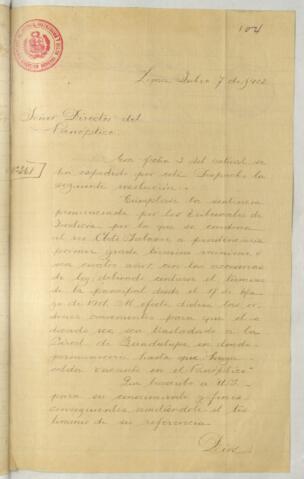 104
Lima, Julio 7 de 1902
Señor Director del
Panóptico.
Con fecha 3 del actual se
ha expedido por este Despacho la
siguiente resolución:
"Cúmplase la sentencia
pronunciada por los Tribunales de
Justicia por la que se condena
al reo Salazar a penitenciaría
primer grado término máximo o
sea cuatro años con las accesorias
de ley; debiendo contarse el término
de la principal desde el 17 de
de 1901. Al efecto dictense las ór-
denes convenientes para que el
reo sea trasladado a la
Cárcel de Guadalupe en donde
permanecerá hasta que haya
celda vacante en el Panóptico."
Que trascribo a U.S.
para su conocimiento y fines
consiguientes remitiéndole el tes-
timonio de su referencia.
Dios